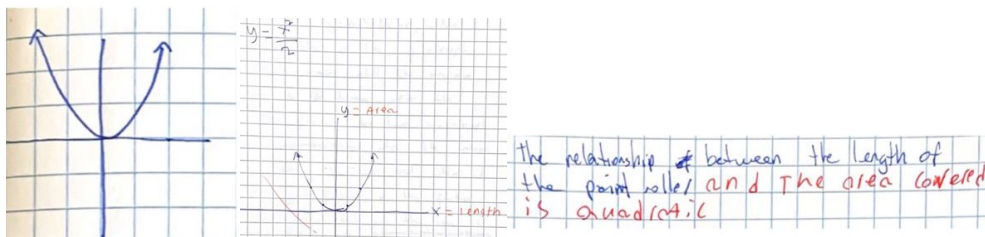 y = x²/2
y = Area
x = length
the relationship between the length of
the paint roller and The area covered
is quadratic